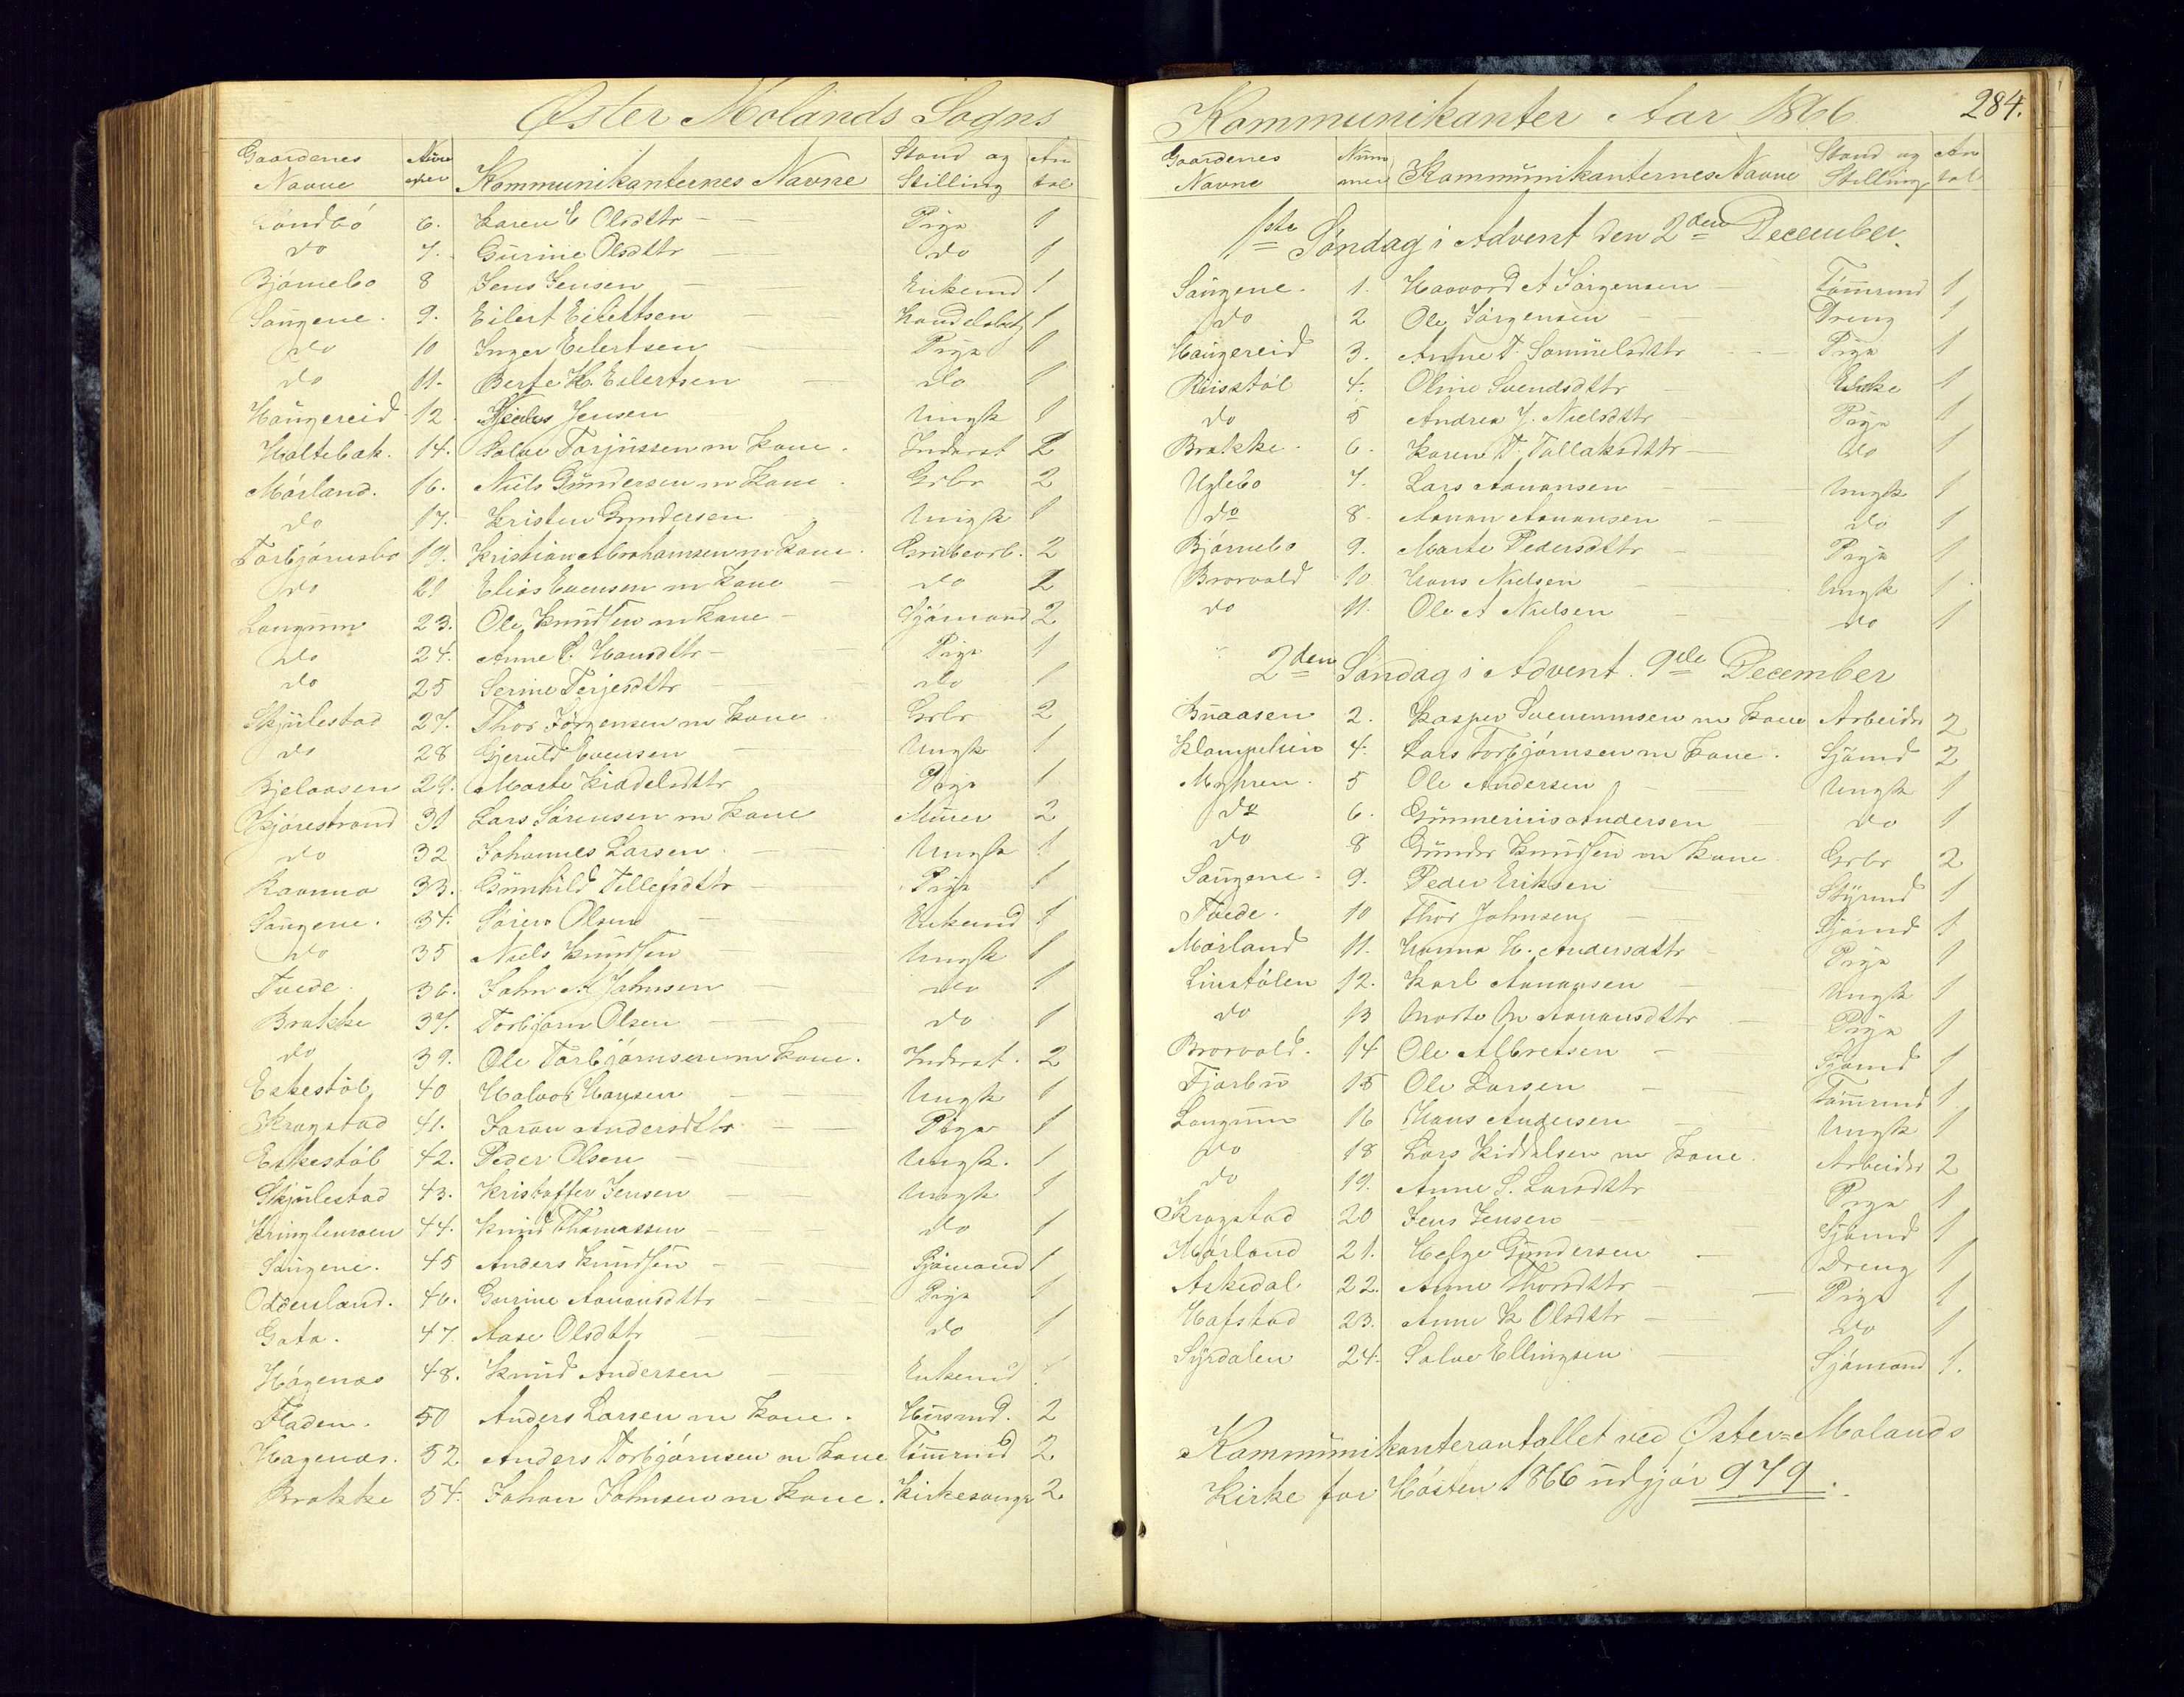 Øster Molands Sogns
Gaardenes Navne | Nummer | Kommunikanternes Navne | Stand og Stilling | Antal
6. Karen E Olsdttr Pige 1
do 7. Gurine Olsdttr do 1
Bjørnebo 8 Jens Jensen Enkemd 1
Saugene. 9. Eilert Eilertsen 1
do 10 Inger Eilertsen Pige 1
do 11. Berte K. Eilertsen do 1
Haugereid 12. Jensen Ungk 1
Holtebak. 14. Salve Torjussen m Kone. Inderst 2
Mørland. 16. Niels Gundersen m Kone. Grbr 2
do 17. Kristen Gundersen Ungk 1
Torbjørnsbo 19. Kristian Abrahamsen m Kone. Grubearb. 2
do 21 Elias Evensen m Kone do 2
Langum 23. Ole Knudsen m Kone Sjømand 2
do 24. Anne P. Hansdttr Pige 1
do 25 Serine Terjesdttr do 1
Skjulestad 27. Thor Jørgensen m Kone Grbr 2
do 28 Gjeruld Evensen Ungk 1
Bjelaasen 29. Marte Kiddelsdttr Pige 1
31 Lars Sørensen m Kone Murer 2
do 32 Johannes Larsen Ungk 1
33. Gunhild Tellefsdttr Pige 1
Saugene. 34. Søren Olsen Enkemd 1
do 35 Niels Knudsen Ungk 1
Tvede. 36. John A Johnsen do 1
Brække 37. Torbjørn Olsen do 1
do 39. Ole Torbjørnsen m Kone. Inderst. 2
Eskestøl 40 Halvor Hansen Ungk 1
Kragstad 41. Andersdttr Pige 1
Eskestøl 42. Peder Olsen Ungk. 1
Skjulestad 43. Kristoffer Jensen Ungk 1
Kringlemoen 44. Knud Thomassen do 1
Saugene. 45 Anders Knudsen Sjømand 1
Oddersland. 46. Gurine Aanonsdttr Pige 1
Gata. 47. Aase Olsdttr do 1
Høgenæs 48. Knud Andersen Enkemd 1
Fladen. 50 Anders Larsen m Kone. Husmd. 2
Høgenæs. 52. Anders Torbjørnsen m Kone Tømrmd 2
Brække 54. Johan Johnsen m Kone. Kirkesangr 2
Kommunikanter Aar 1866 284.
Gaardenes Navne | Nummer | Kommunikanternes Navne | Stand og Stilling | Antal
1ste Søndag i Advent den 2den December.
Saugene. 1. Haavord A Jørgensen Tømrmd 1
do 2 Ole Jørgensen Dreng 1
Haugereid 3. Anne T. Samuelsdttr Pige 1
4. Oline Svendsdttr Enke 1
do 5 Andrea J. Nielsdttr Pige 1
Brække. 6. Karen T. Tallaksdttr do 1
Uglebo 7. Lars Aanonsen Ungk 1
do 8. Aanon Aanonsen do 1
Bjørnebo 9. Marte Pedersdttr Pige 1
Brorvold 10. Hans Nielsen Ungk 1
do 11. Ole A Nielsen do 1
2den Søndag i Advent. 9de December
Buaasen 2. Kasper Svenumsen m Kone Arbeider 2
4. Lars Torbjørnsen m Kone. Sjømd 2
Myhren. 5 Ole Andersen Ungk 1
do 6. Gunnerius Andersen do 1
do 8 Gunder Knudsen m Kone Grbr 2
Saugene. 9. Peder Eriksen Styrmd 1
Tvede. 10 Thor Johnsen Sjømd 1
Mørland 11. Hanna H. Andersdttr Pige 1
Linstølen 12. Karl Aanonsen Ungk 1
do 13 Marte M Aanonsdttr Pige 1
Brorvold. 14 Ole Albretsen Sjømd 1
Fjærbu 15 Ole Larsen Tømrmd 1
Langum 16 Hans Andersen Ungk 1
do 18 Lars Kiddelsen m Kone. Arbeider 2
do 19. Anne S. Larsdttr Pige 1
Kragstad 20 Jens Jensen Sjømd 1
Mørland 21. Helge Gundersen Dreng 1
Askedal 22. Anne Thorsdttr Pige 1
Hafstad 23. Anne K Olsdttr do 1
Syrdalen 24. Salve Ellingsen Sjømand 1.
Kommunikanterantallet ved Øster=Molands
Kirke for Høsten 1866 udgjør 979.